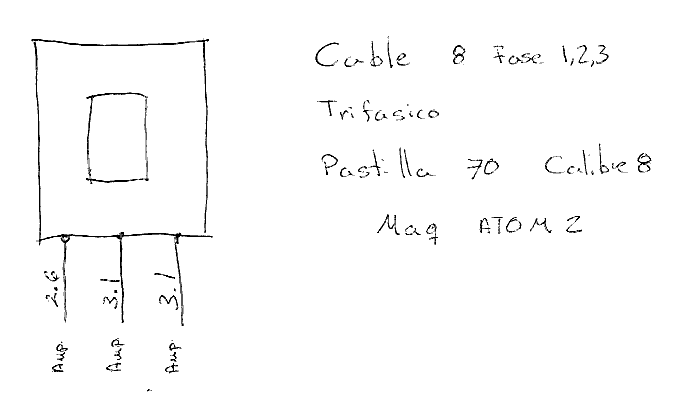 Cable 8 Fase 1,2,3
Trifasico
Pastilla 70 Calibre 8
Maq ATOM 2
2.6 3.1 3.1
Amp. Amp Amp.